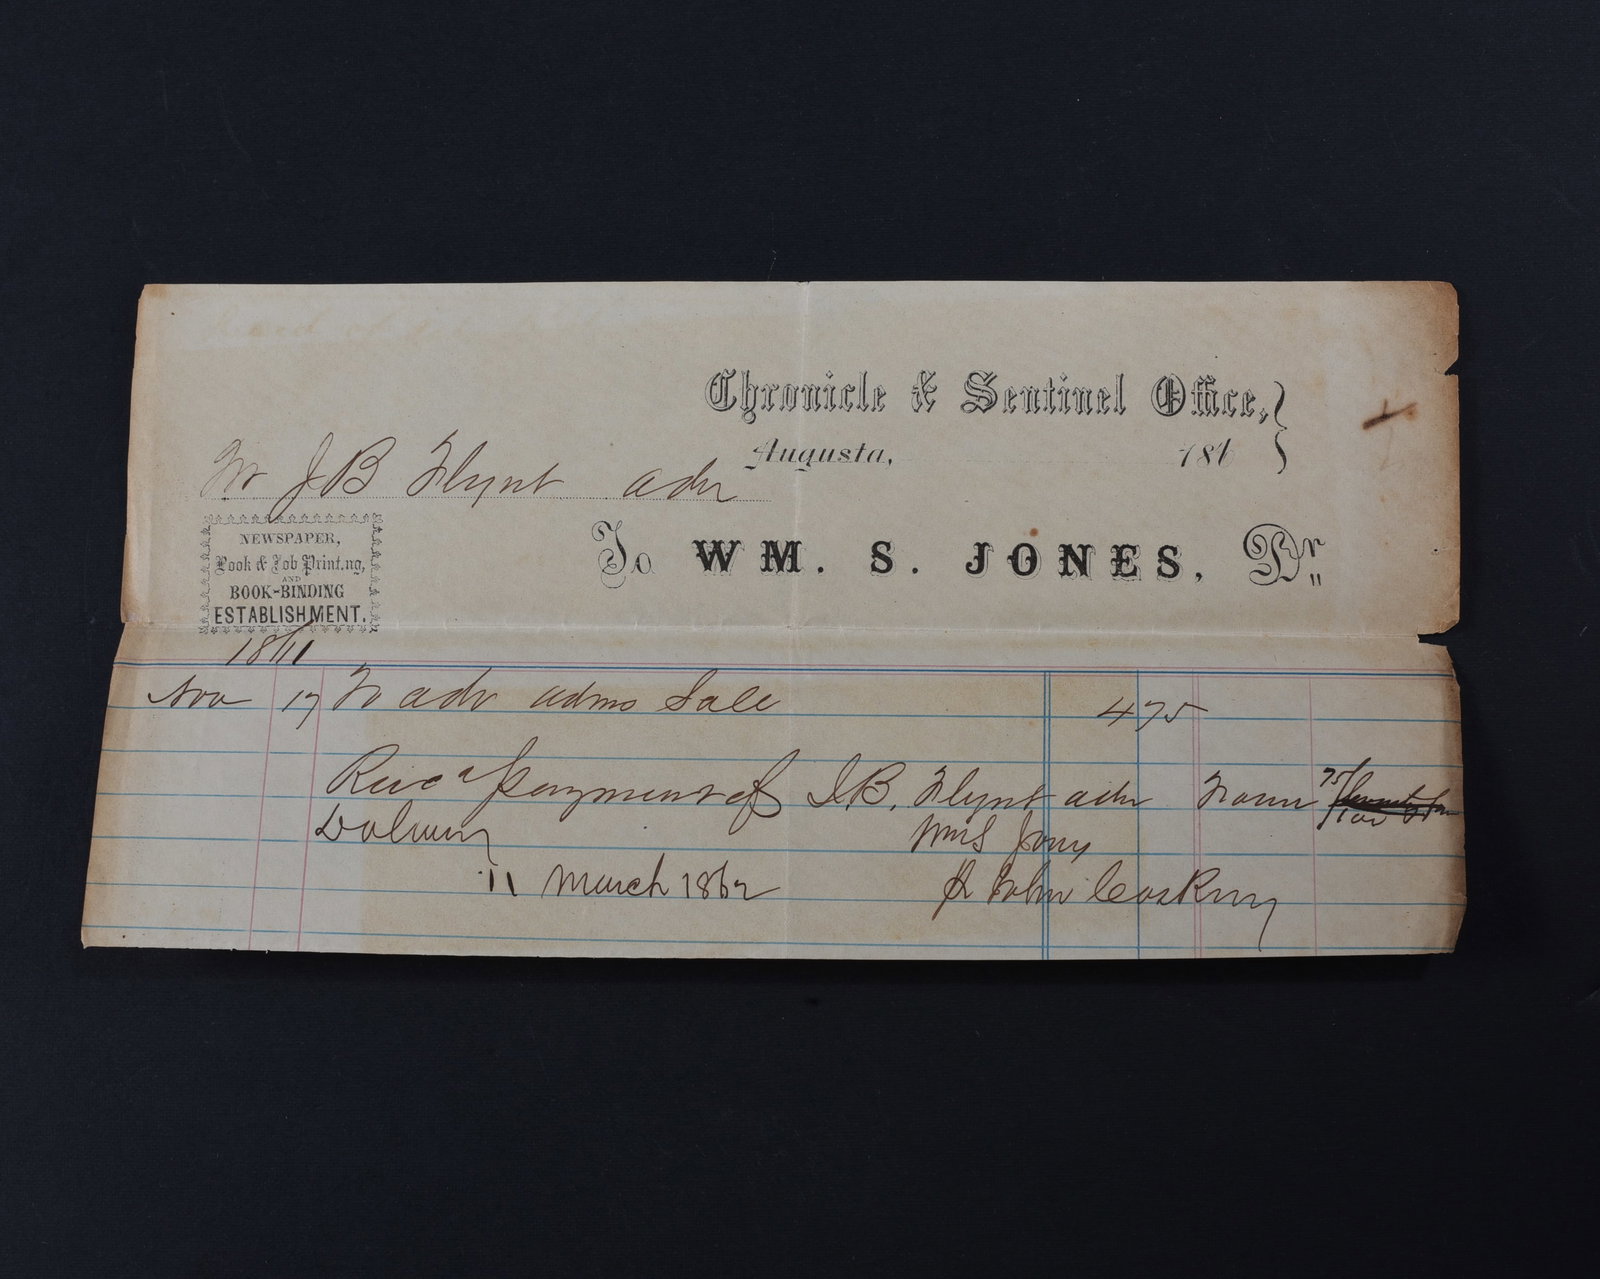 Chronicle & Sentinel Office,
Augusta, 186
Mr J B Flynt adm
To WM. S. JONES, Dr
NEWSPAPER,
Book & Job Printing,
AND
BOOK-BINDING
ESTABLISHMENT.
1861
Nov 17 To adv admrs Sale 4 75
Recd payment of J. B. Flynt adm Four 75/100
Dolurs
Wm S Jones
11 March 1862
John